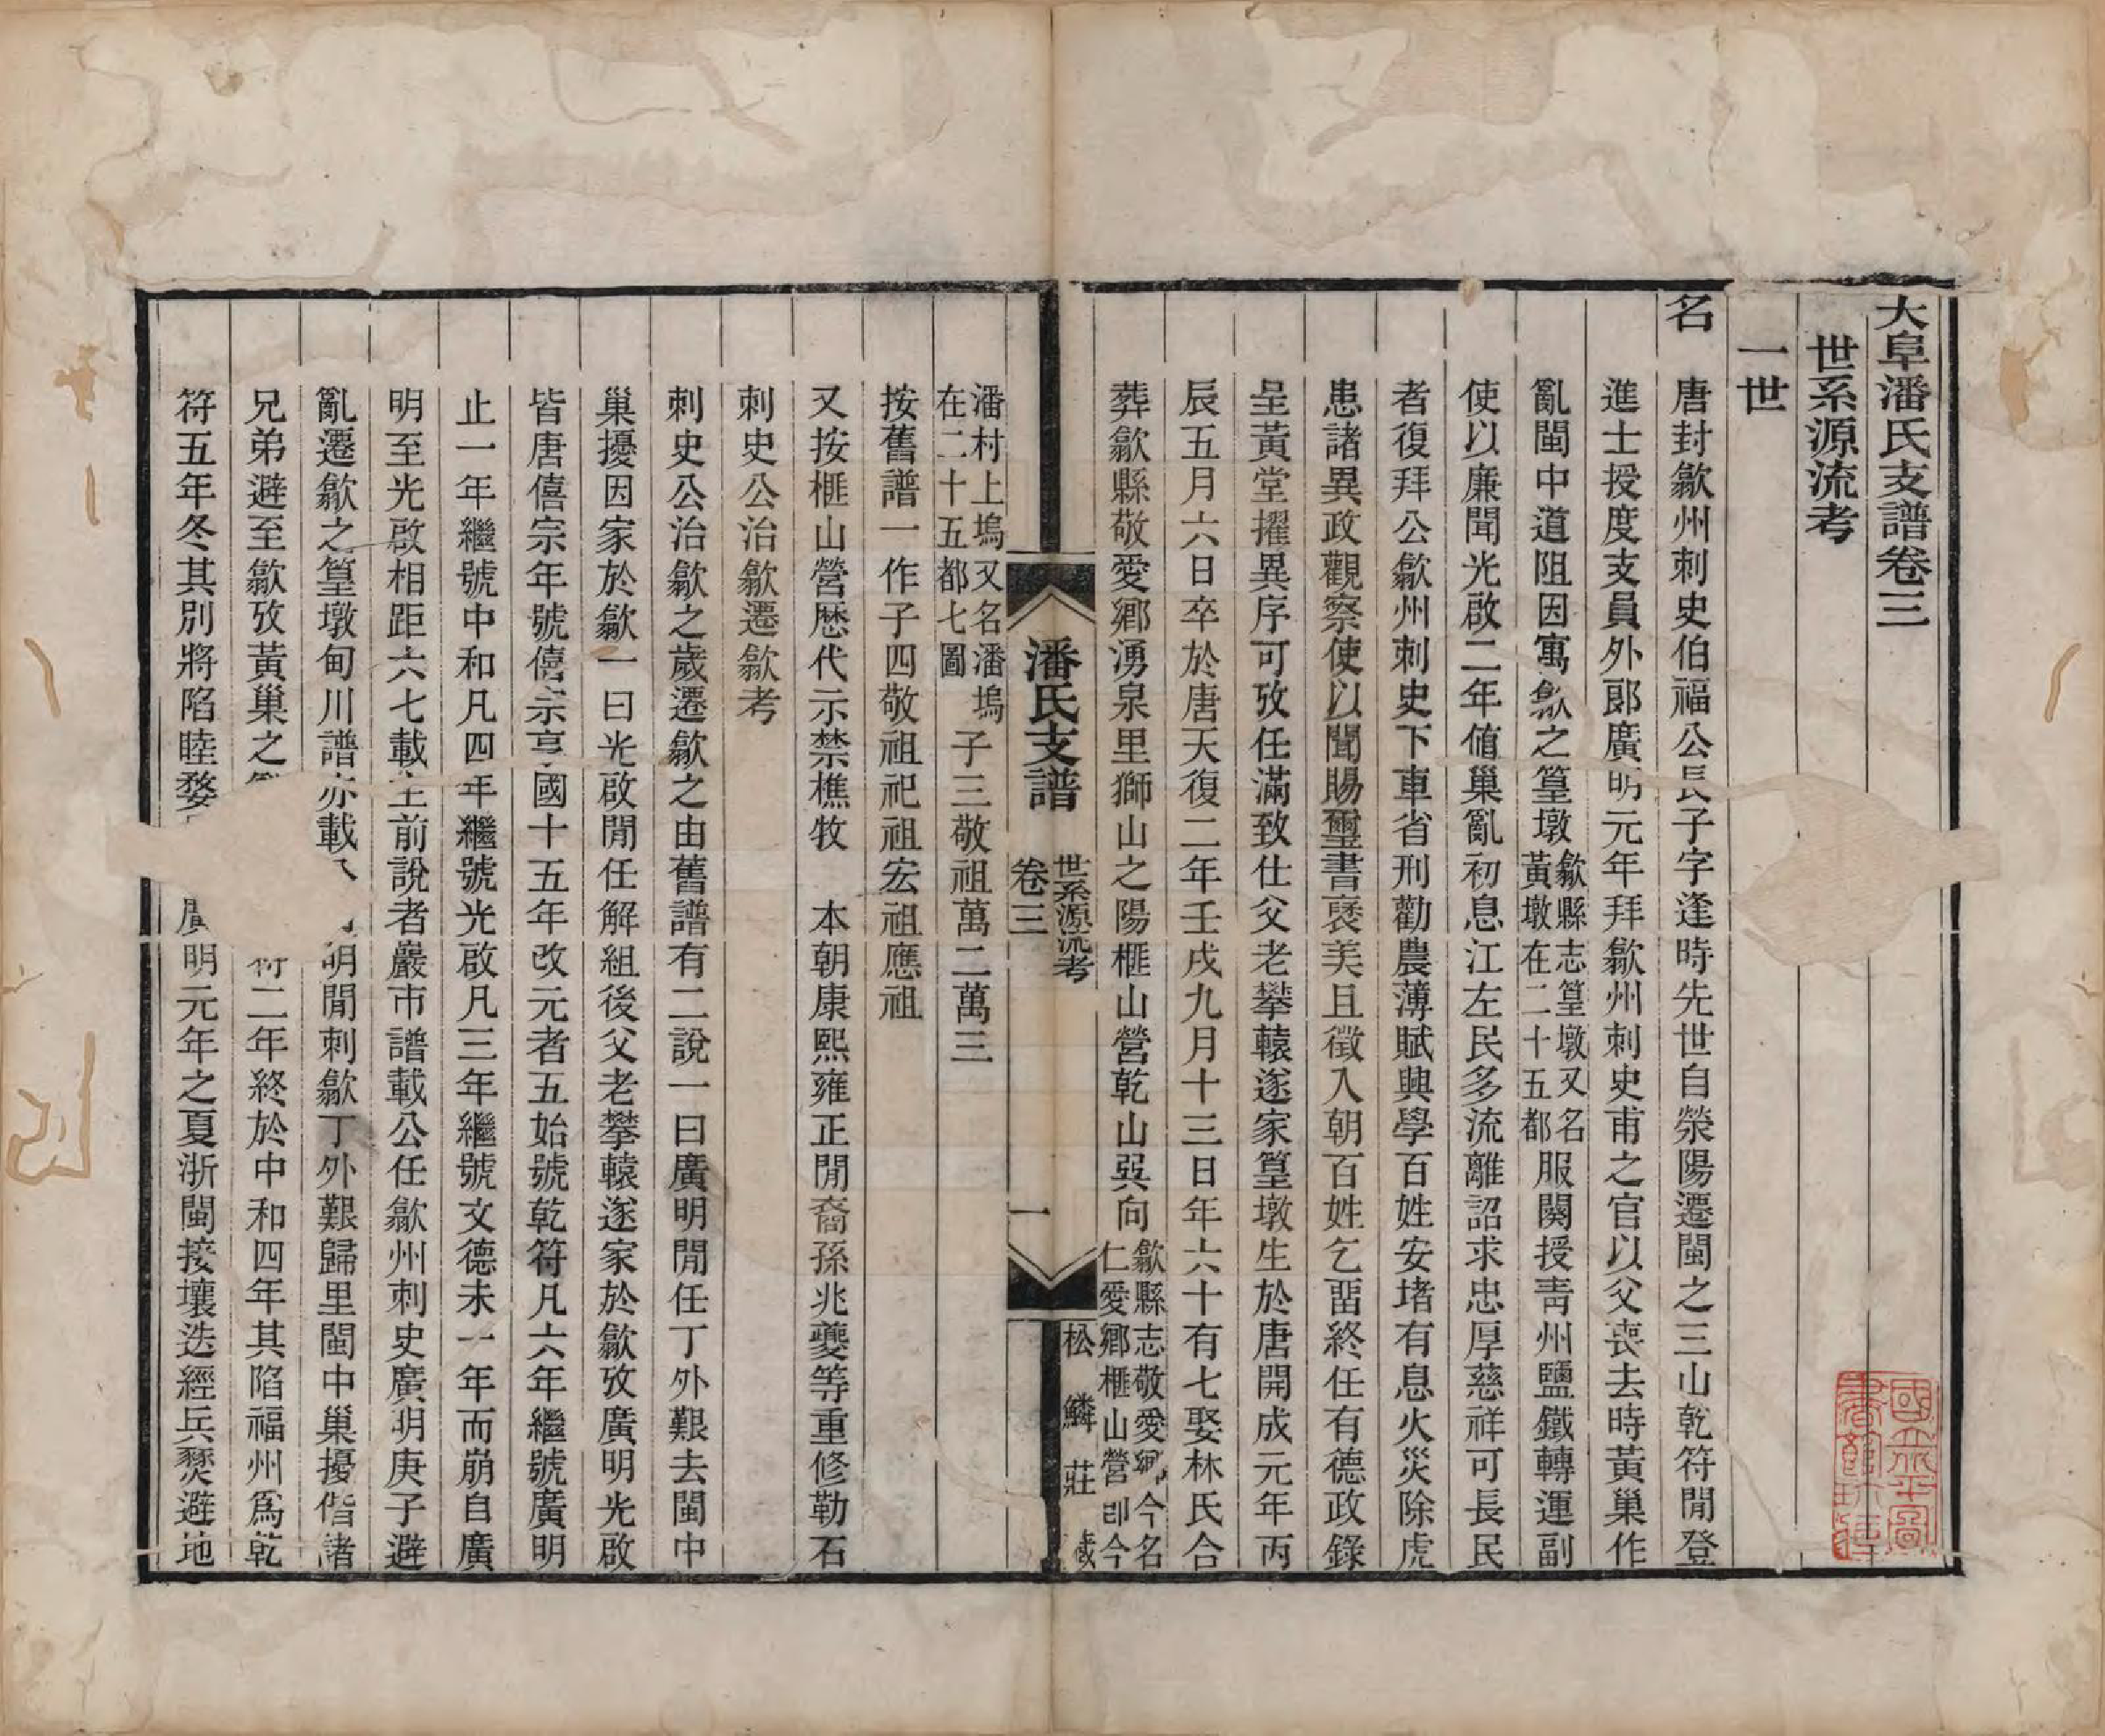 大阜潘氏支譜卷三
世系源流考
一世
名　唐封歙州刺史伯福公長子字逢時先世自滎陽遷閩之三山乾符閒登
進士授度支員外郎廣明元年拜歙州刺史甫之官以父喪去時黃巢作
亂閩中道阻因寓歙之篁墩歙縣志篁墩又名黃墩在二十五都服闋授靑州鹽鐵轉運副
使以廉聞光啟二年値巢亂初息江左民多流離詔求忠厚慈祥可長民
者復拜公歙州刺史下車省刑勸農薄賦興學百姓安堵有息火災除虎
患諸異政觀察使以聞賜璽書褒美且徵入朝百姓乞畱終任有德政錄
呈黃堂擢異序可攷任滿致仕父老攀轅遂家篁墩生於唐開成元年丙
辰五月六日卒於唐天復二年壬戌九月十三日年六十有七娶林氏合
葬歙縣敬愛鄉湧泉里獅山之陽榧山營乾山巽向歙縣志敬愛鄉今名仁愛鄉榧山營卽今
潘氏支譜　世系源流考　卷三　一　松鱗莊藏
潘村上塢又名潘塢在二十五都七圖子三敬祖萬二萬三
按舊譜一作子四敬祖祀祖宏祖應祖
又按榧山營歷代示禁樵牧　本朝康熙雍正閒裔孫兆夔等重修勒石
刺史公治歙遷歙考
刺史公治歙之歲遷歙之由舊譜有二說一曰廣明閒任丁外艱去閩中
巢擾因家於歙一曰光啟閒任解組後父老攀轅遂家於歙攷廣明光啟
皆唐僖宗年號僖宗享國十五年改元者五始號乾符凡六年繼號廣明
止一年繼號中和凡四年繼號光啟凡三年繼號文德未一年而崩自廣
明至光啟相距六七載主前說者巖市譜載公任歙州刺史廣明庚子避
亂遷歙之篁墩甸川譜亦載明閒刺歙丁外艱歸里閩中巢擾偕諸
兄弟避至歙攷黃巢之符二年終於中和四年其陷福州爲乾
符五年冬其別將陷睦婺廣明元年之夏浙閩接壤迭經兵燹避地